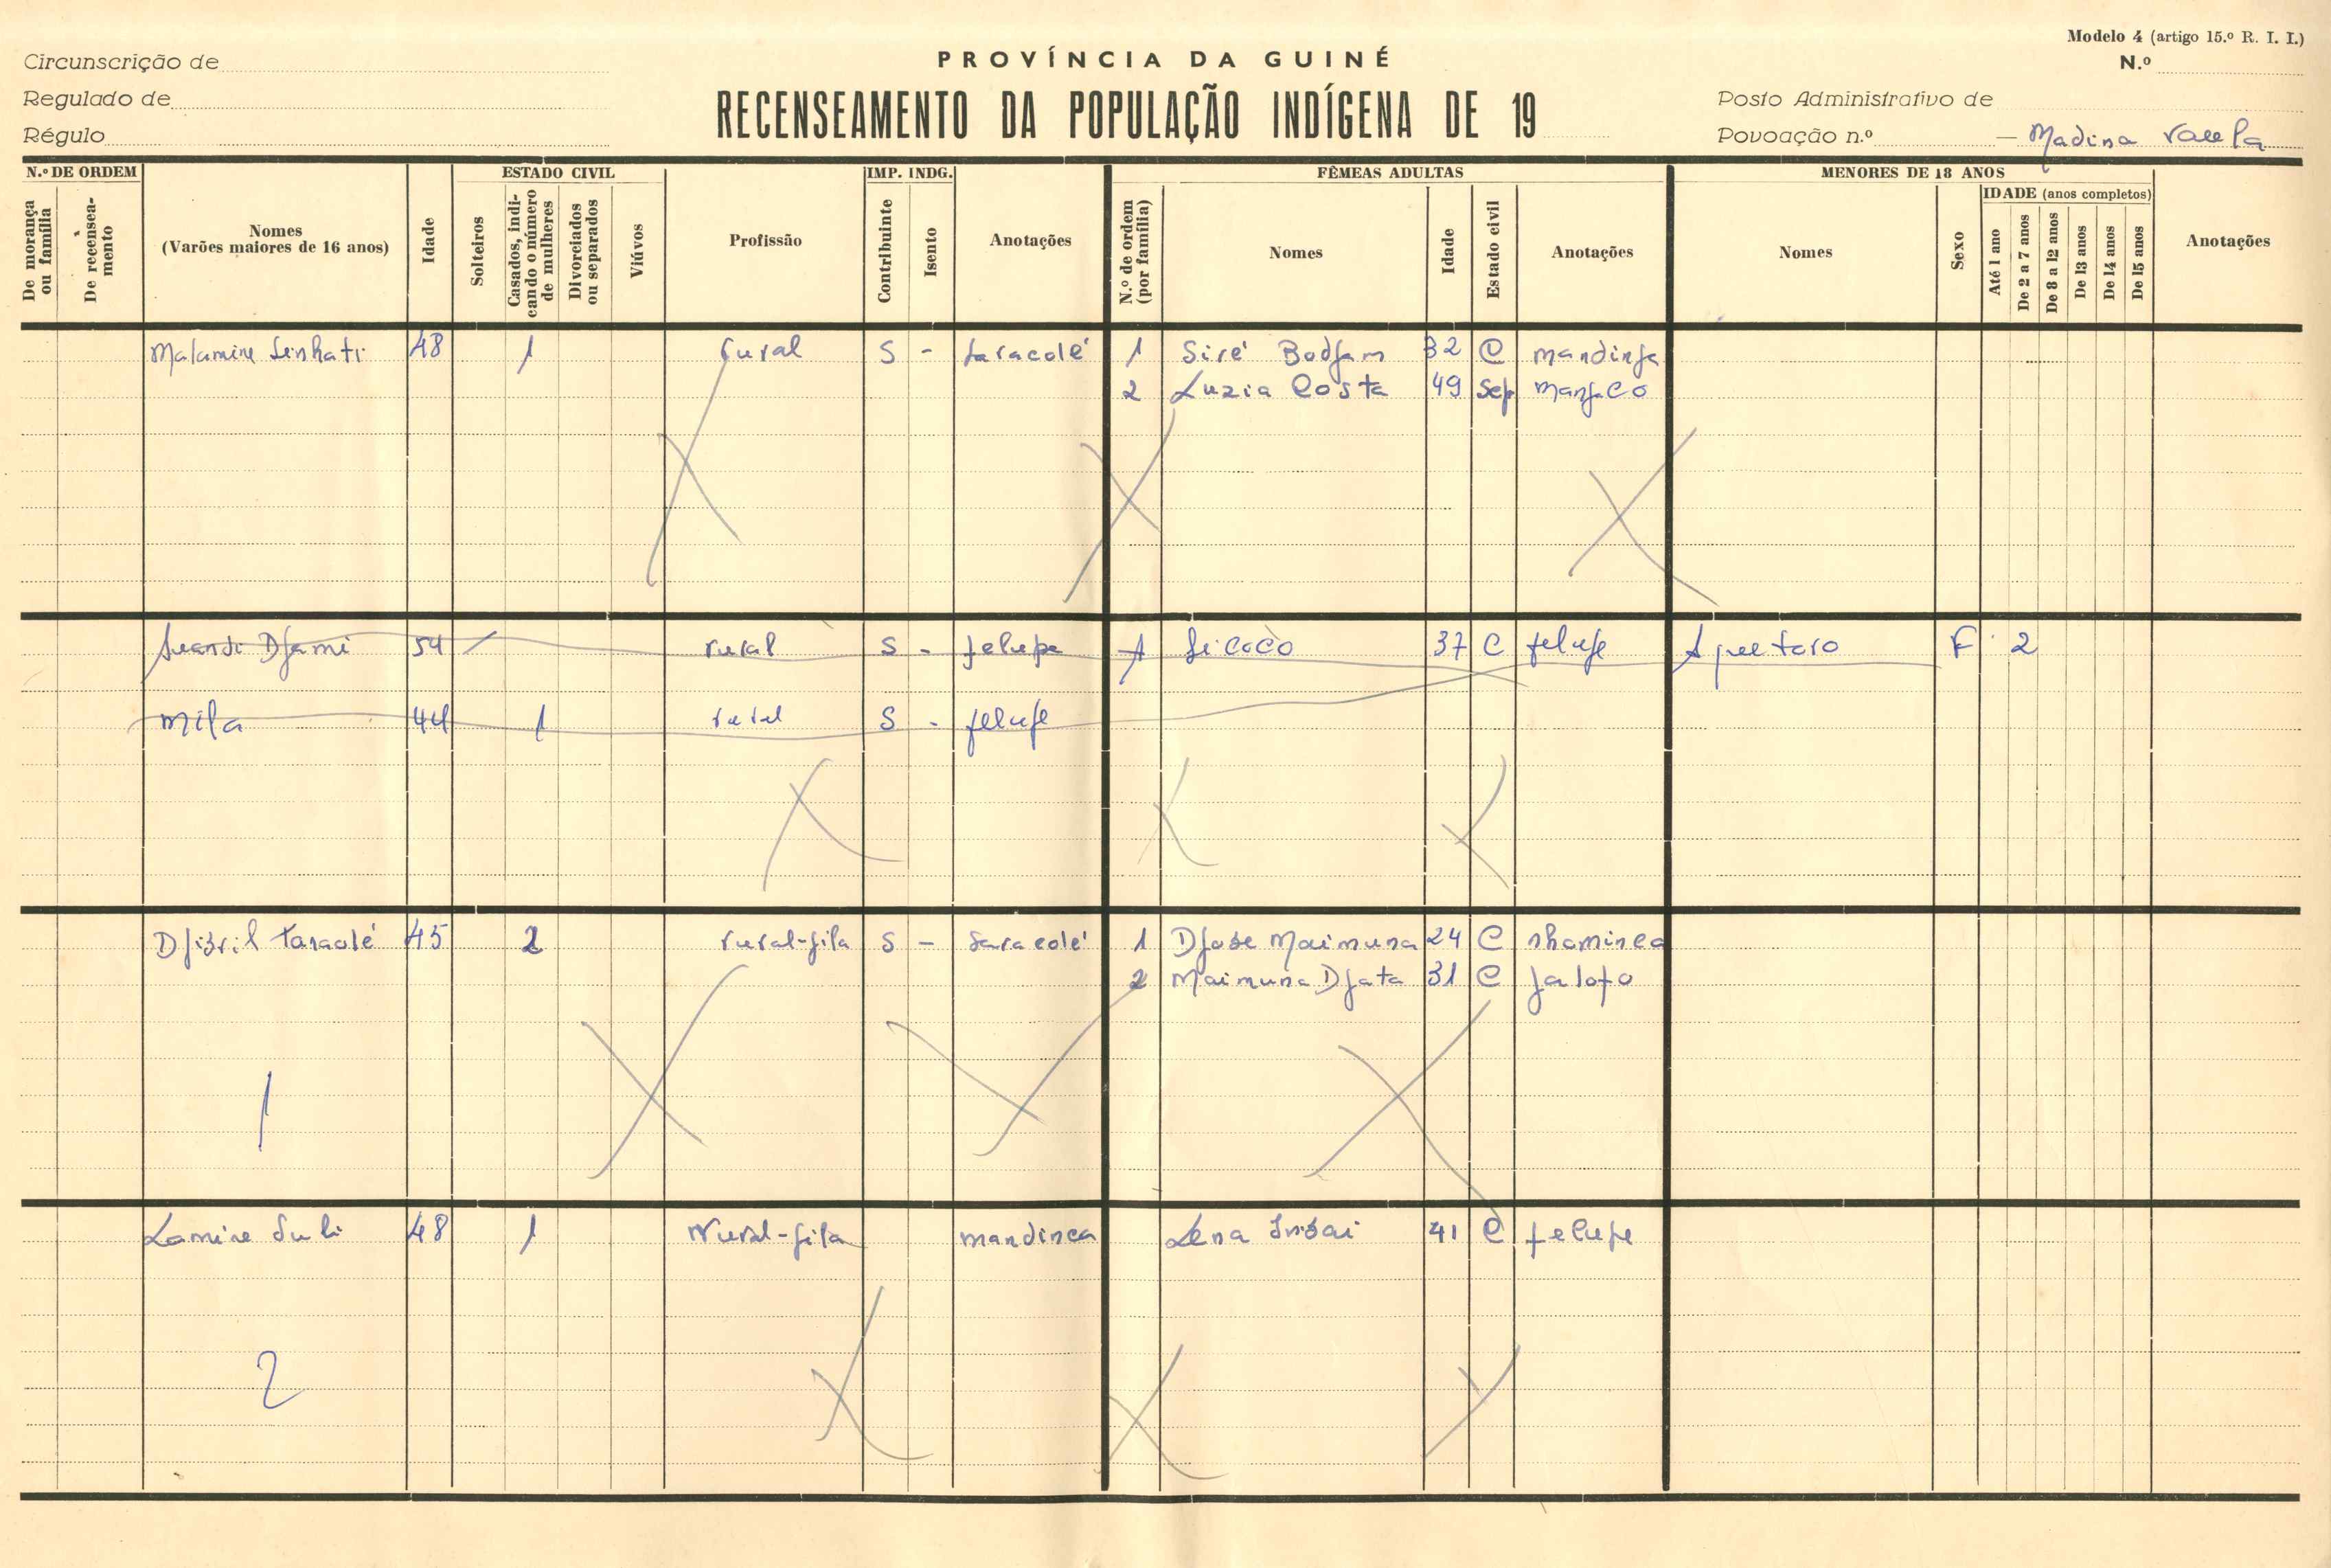 Modelo 4 (artigo 15.º R. I. I.)
Circunscrição de
PROVÍNCIA DA GUINÉ
N.º
Regulado de
RECENSEAMENTO DA POPULAÇÃO INDÍGENA DE 19
Posto Administrativo de
Régulo
Povoação n.º — Madina Varela
N.º DE ORDEM
De morança ou família
De reensea-mento
Nomes
(Varões maiores de 16 anos)
Idade
ESTADO CIVIL
Solteiros
Casados, indi-cando o número de mulheres
Divorciados ou separados
Viúvos
Profissão
IMP. INDG.
Contribuinte
Isento
Anotações
FÊMEAS ADULTAS
N.º de ordem (por família)
Nomes
Idade
Estado civil
Anotações
MENORES DE 18 ANOS
Nomes
Sexo
IDADE (anos completos)
Até 1 ano
De 2 a 7 anos
De 8 a 12 anos
De 13 anos
De 14 anos
De 15 anos
Anotações
Malamine Sinhati 48 1 rural S - saracolé 1 Siré Bodjam 32 C mandinga
2 Luzia Costa 49 Sep manjaco
Djami 54 / rural S - felupe 1 Sicoco 37 C felupe F 2
Mila 44 1 rural S - felupe
Djibril 45 2 rural-gila S - saracolé 1 Maimuna 24 C nhominca
2 Maimuna Djata 31 C jalofo
1
Lamine Suli 48 1 rural-gila mandinca Lena 41 C felupe
2